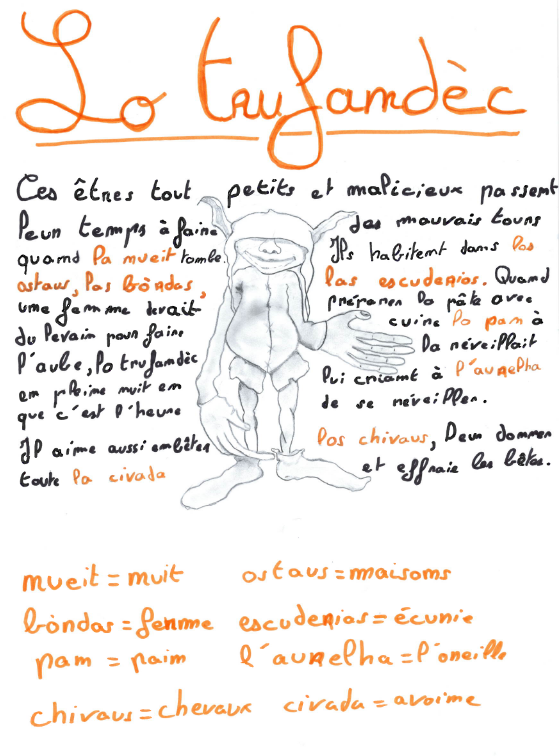 Lo trufamdèc
Ces êtres tout petits et malicieux passent
leur temps à faire des mauvais tours
quand la mueit tombe. Ils habitent dans los
ostaus, las bòrdas, las escuderias. Quand
une femme devait préparer la pâte avec
du levain pour faire cuire lo pan à
l'aube, lo trufamdèc la réveillait
en pleine nuit en lui criant à l'aurelha
que c'est l'heure de se réveiller.
Il aime aussi embêter los chivaus, leur donner
toute la civada et effraie les bêtes.
mueit = nuit ostaus = maisons
bòrdas = ferme escuderias = écurie
pan = pain l'aurelha = l'oreille
chivaus = chevaux civada = avoine